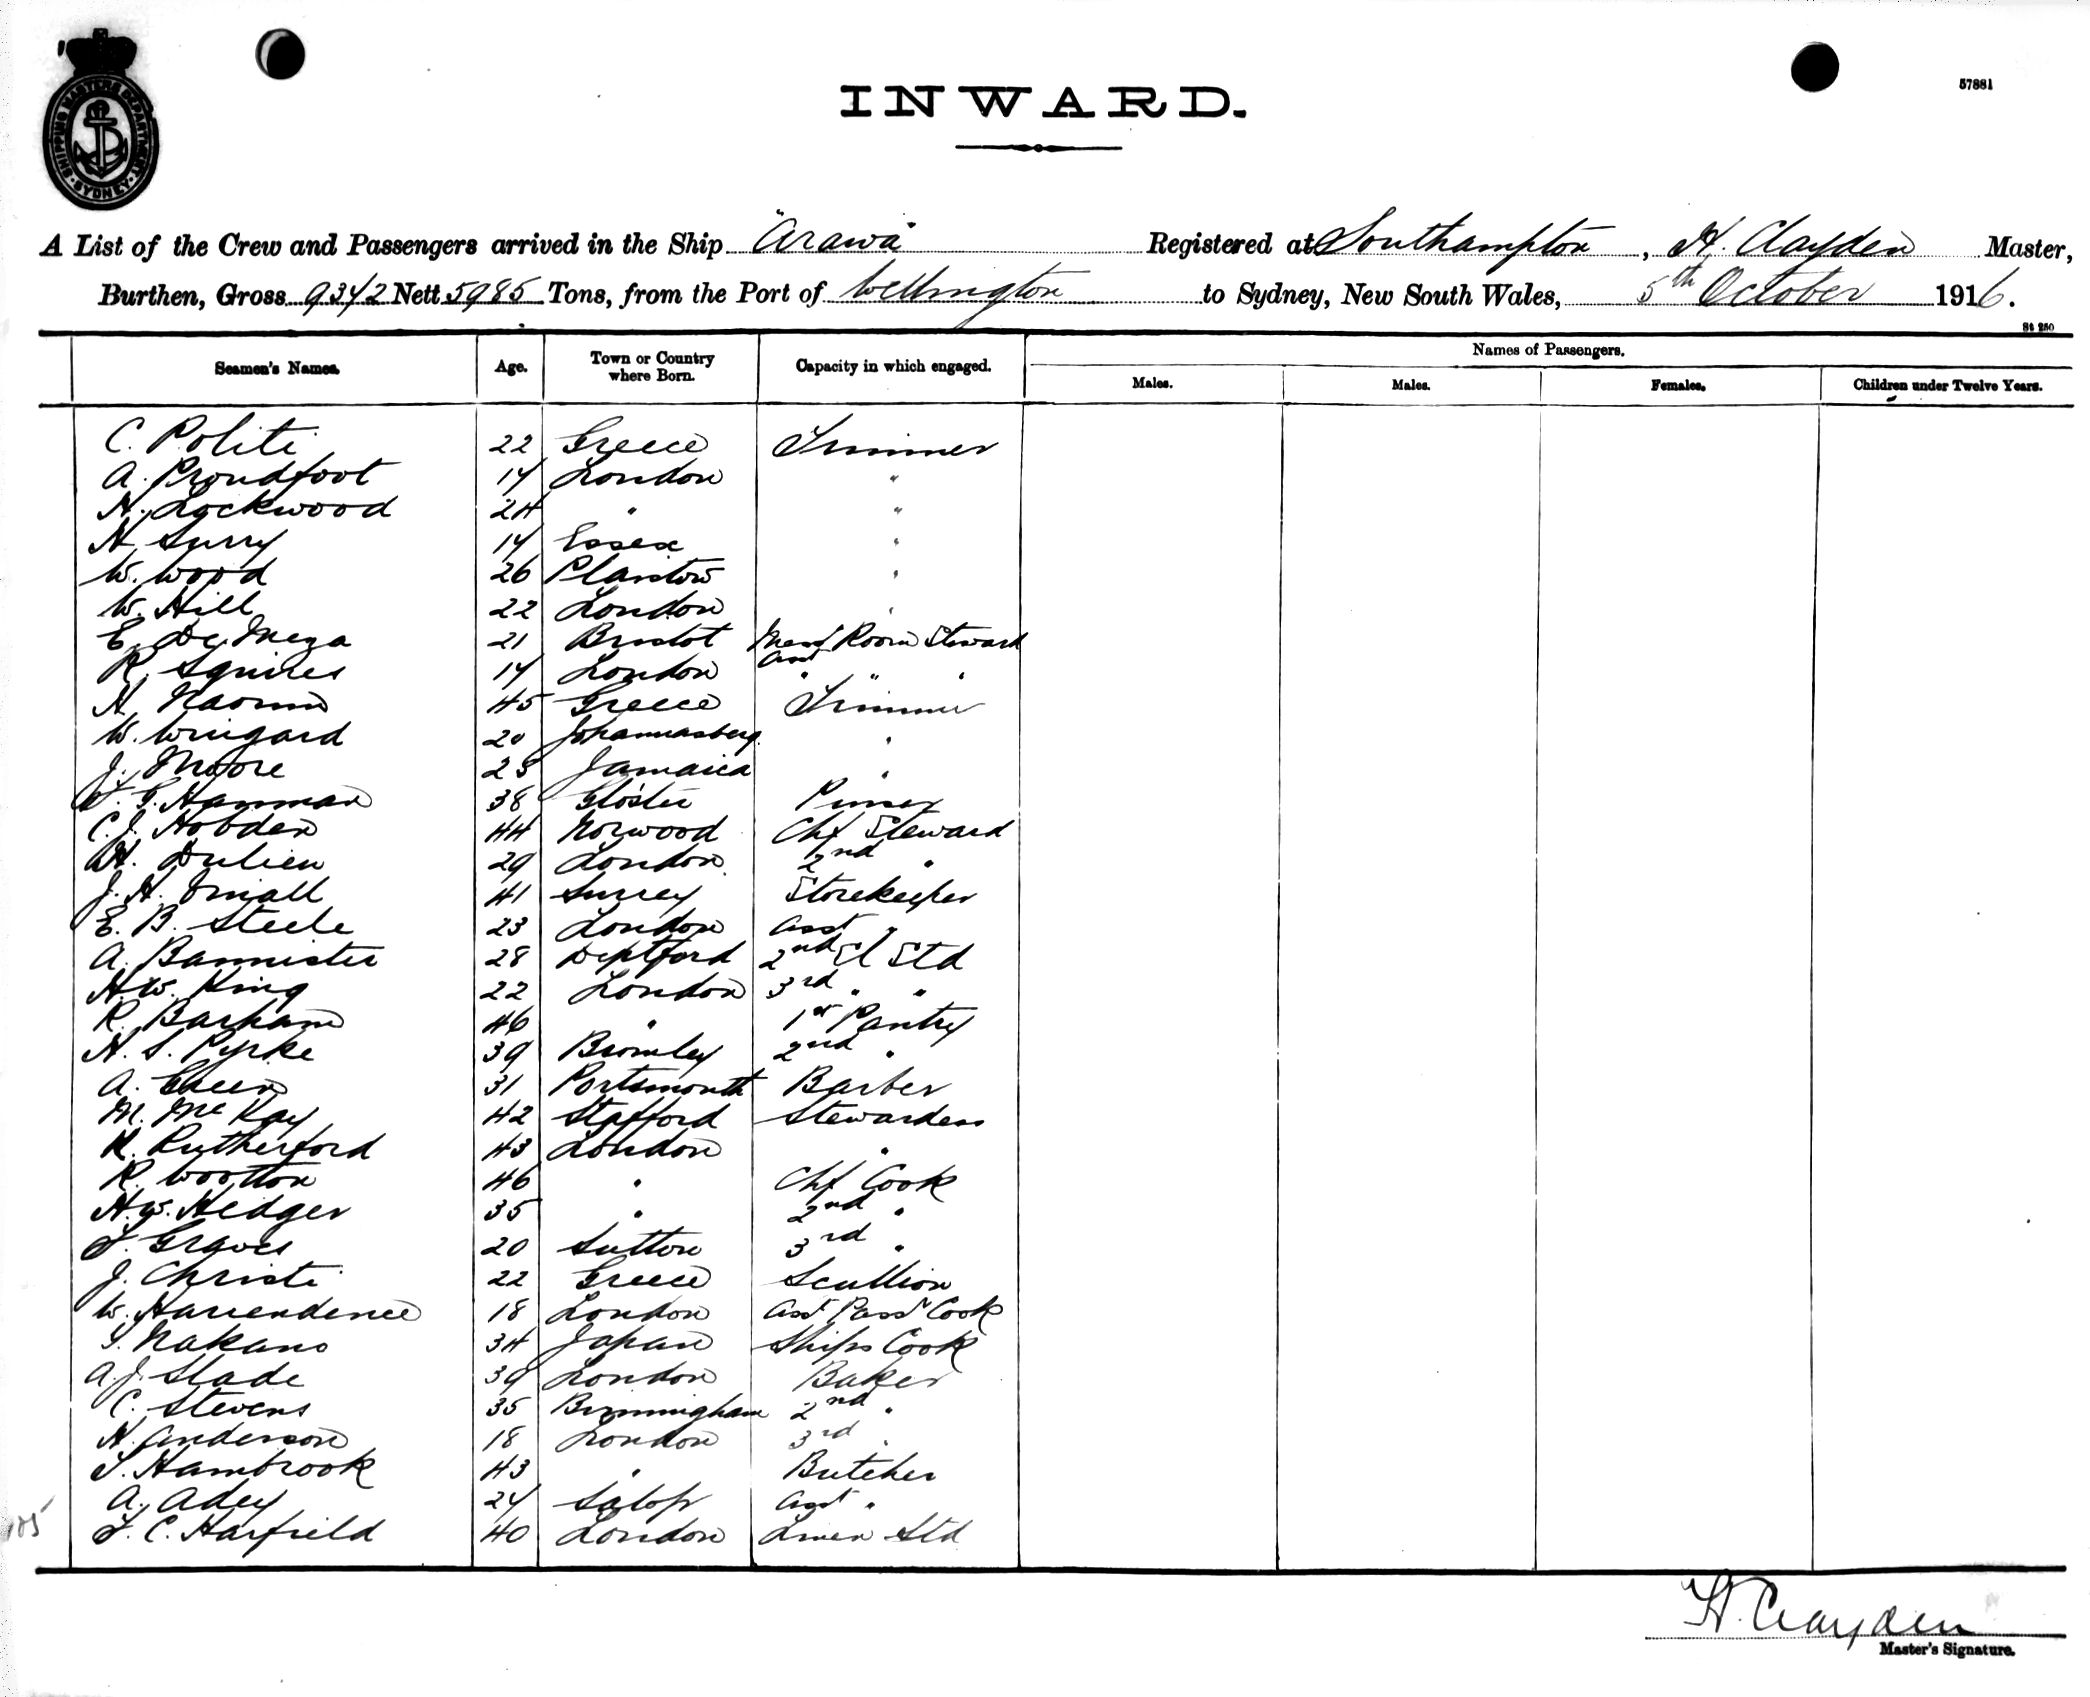 SHIPPING MASTERS DEPARTMENT · SYDNEY ·
57881
INWARD.
A List of the Crew and Passengers arrived in the Ship "Arawa" Registered at Southampton, H. Clayden Master,
Burthen, Gross 9342 Nett 5985 Tons, from the Port of Wellington to Sydney, New South Wales, 5th October 1916.
St 250
Seamen's Names. Age. Town or Country where Born. Capacity in which engaged. Names of Passengers.
Males. Males. Females. Children under Twelve Years.
C. Politi 22 Greece Trimmer
A. Proudfoot 14 London "
H. Lockwood 24 " "
H. Surry 14 Essex "
W. Wood 26 Plaistow "
W. Hill 22 London "
E. De Meza 21 Bristol Mess Room Steward
R. Squires 14 London Asst " " "
H. 45 Greece Trimmer
W. Wingard 20 Johannasberg "
J. Moore 25 Jamaica "
T. G. Hamman 38 Gloster Purser
C. J. Hobden 44 Norwood Chf Steward
H. Dulieu 29 London 2nd "
J. H. Small 41 Surrey Storekeeper
E. B. Steele 23 London Asst "
A. Bannister 28 Deptford 2nd Sl Std
H. W. King 22 London 3rd " "
R. Barham 46 " 1st Pantry
H. S. Pyrke 39 Bromley 2nd "
A. Green 31 Portsmouth Barber
M. McKay 42 Stafford Stewardess
K. Rutherford 43 London "
R. Wootton 46 " Chf Cook
H. W. Hedger 35 " 2nd "
T. Graves 20 Sutton 3rd "
J. Christi 22 Greece Scullion
W. Harrendence 18 London Asst Passr Cook
S. Nakano 34 Japan Ships Cook
A. J. Slade 39 London Baker
C. Stevens 35 Birmingham 2nd "
H. Anderson 18 London 3rd "
T. Hambrook 43 " Butcher
A. Adey 24 Salop Asst "
T. C. Harfield 40 London Linen Std
H. Clayden
Master's Signature.